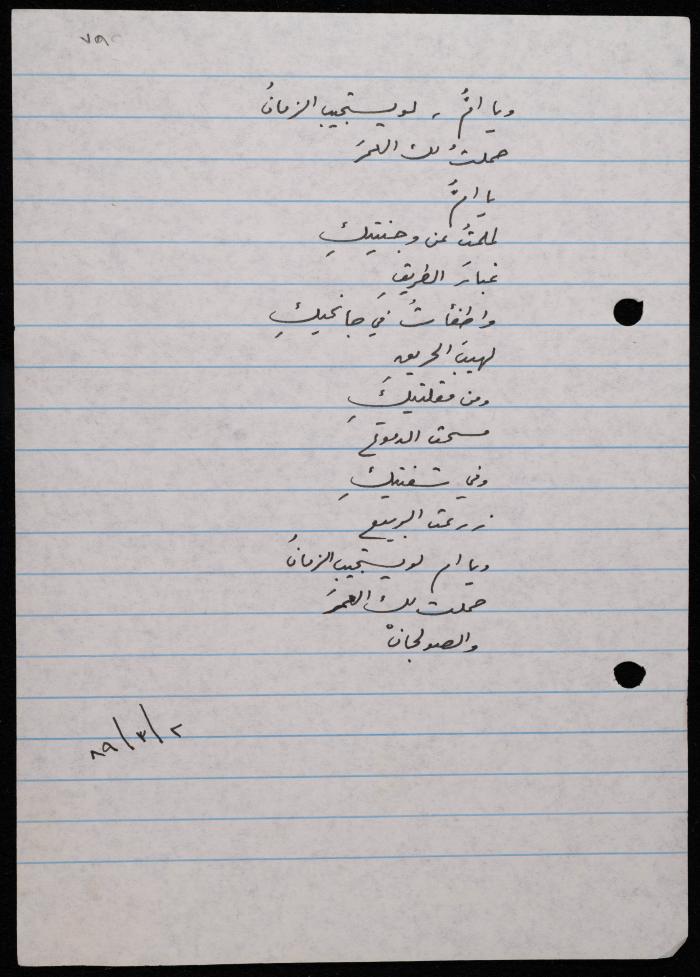 ٧٩
ويا امُّ، لو يستجيب الزمانُ
حملتُ لك العمرَ
يا امُّ
لملمتُ عن وجنتيكِ
غبارَ الطريقِ
واطفأتُ في جانحيكِ
لهيبَ الحريق
ومن مقلتيكِ
مسحت الدموعَ
وفي شفتيكِ
زرعت الربيع
ويا ام لو يستجيب الزمانُ
حملت لك العمرَ
والصولجانْ
٨٩/٣/٢